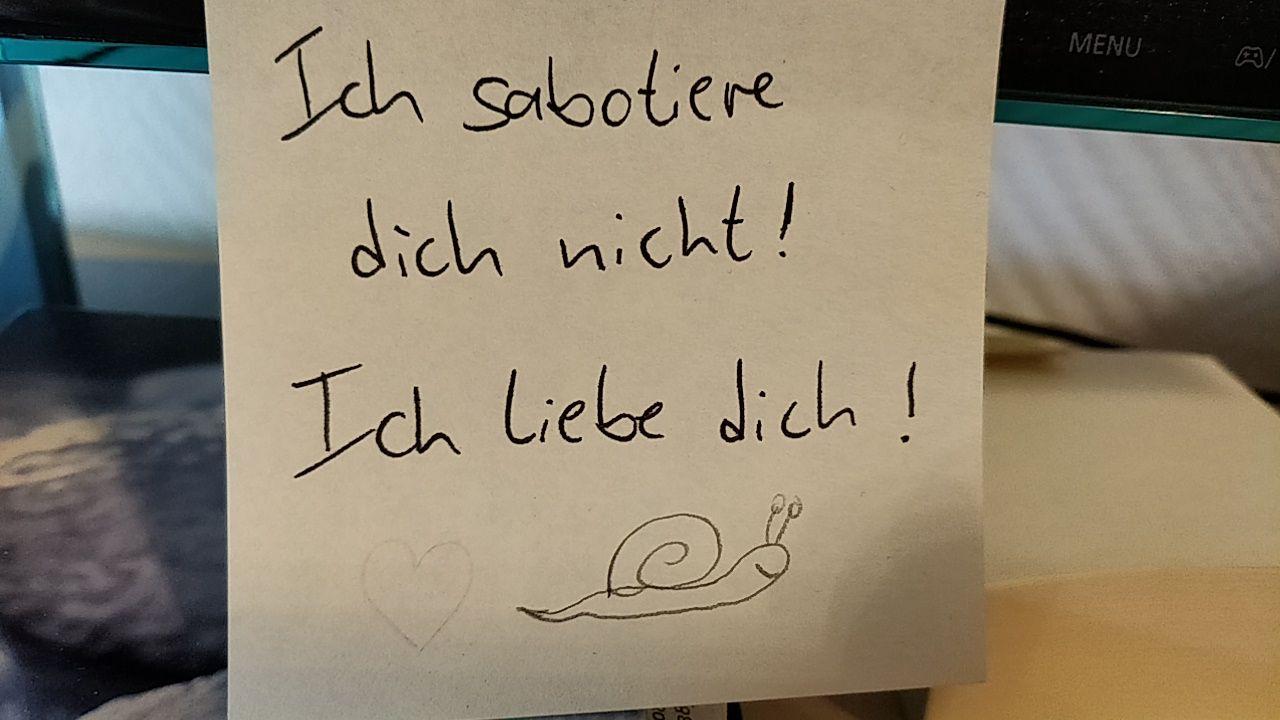 MENU
Ich sabotiere
dich nicht!
Ich liebe dich!